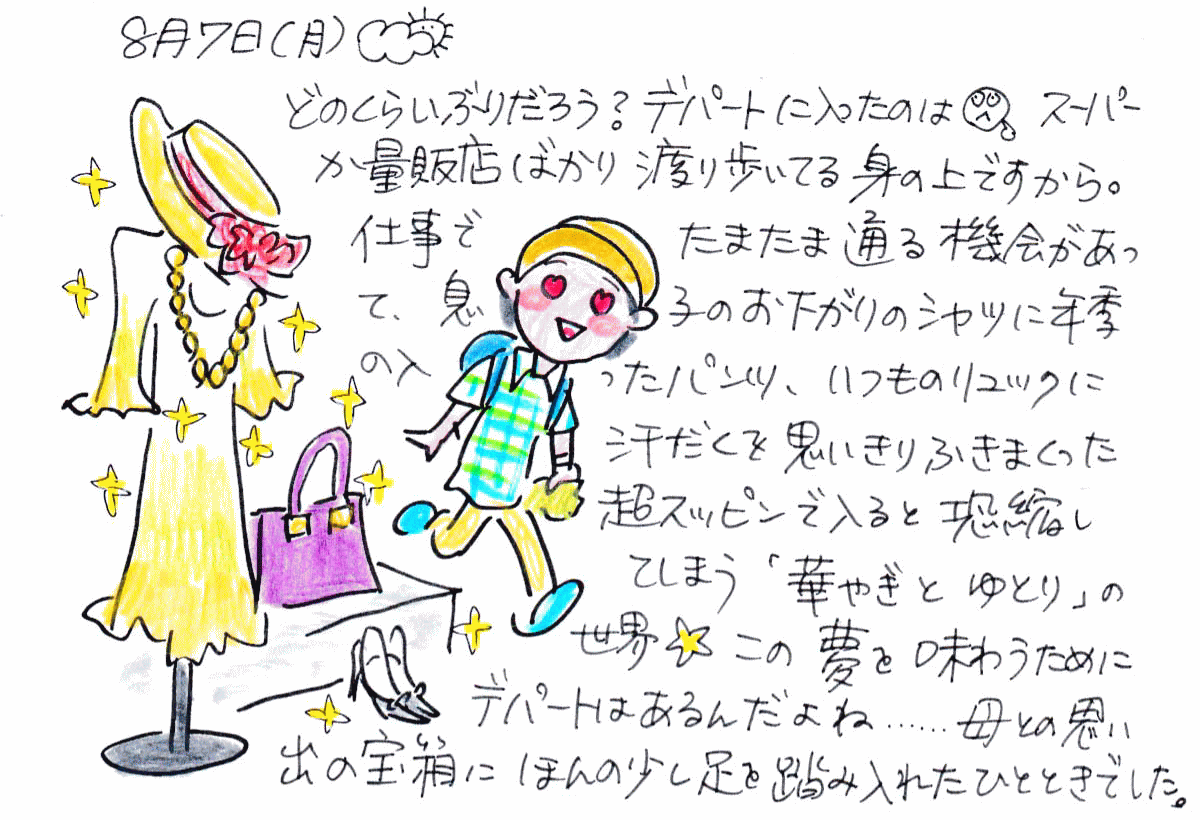 8月7日(月)
どのくらいぶりだろう?デパートに入ったのは スーパー
か量販店ばかり渡り歩いてる身の上ですから。
仕事で たまたま通る機会があっ
て、息 子のお下がりのシャツに年季
の入 ったパンツ、いつものリュックに
汗だくを思いきりふきまくった
超スッピンで入ると恐縮し
てしまう「華やぎとゆとり」の
世界☆この夢を味わうために
デパートはあるんだよね……母との思い
出の宝箱にほんの少し足を踏み入れたひとときでした。